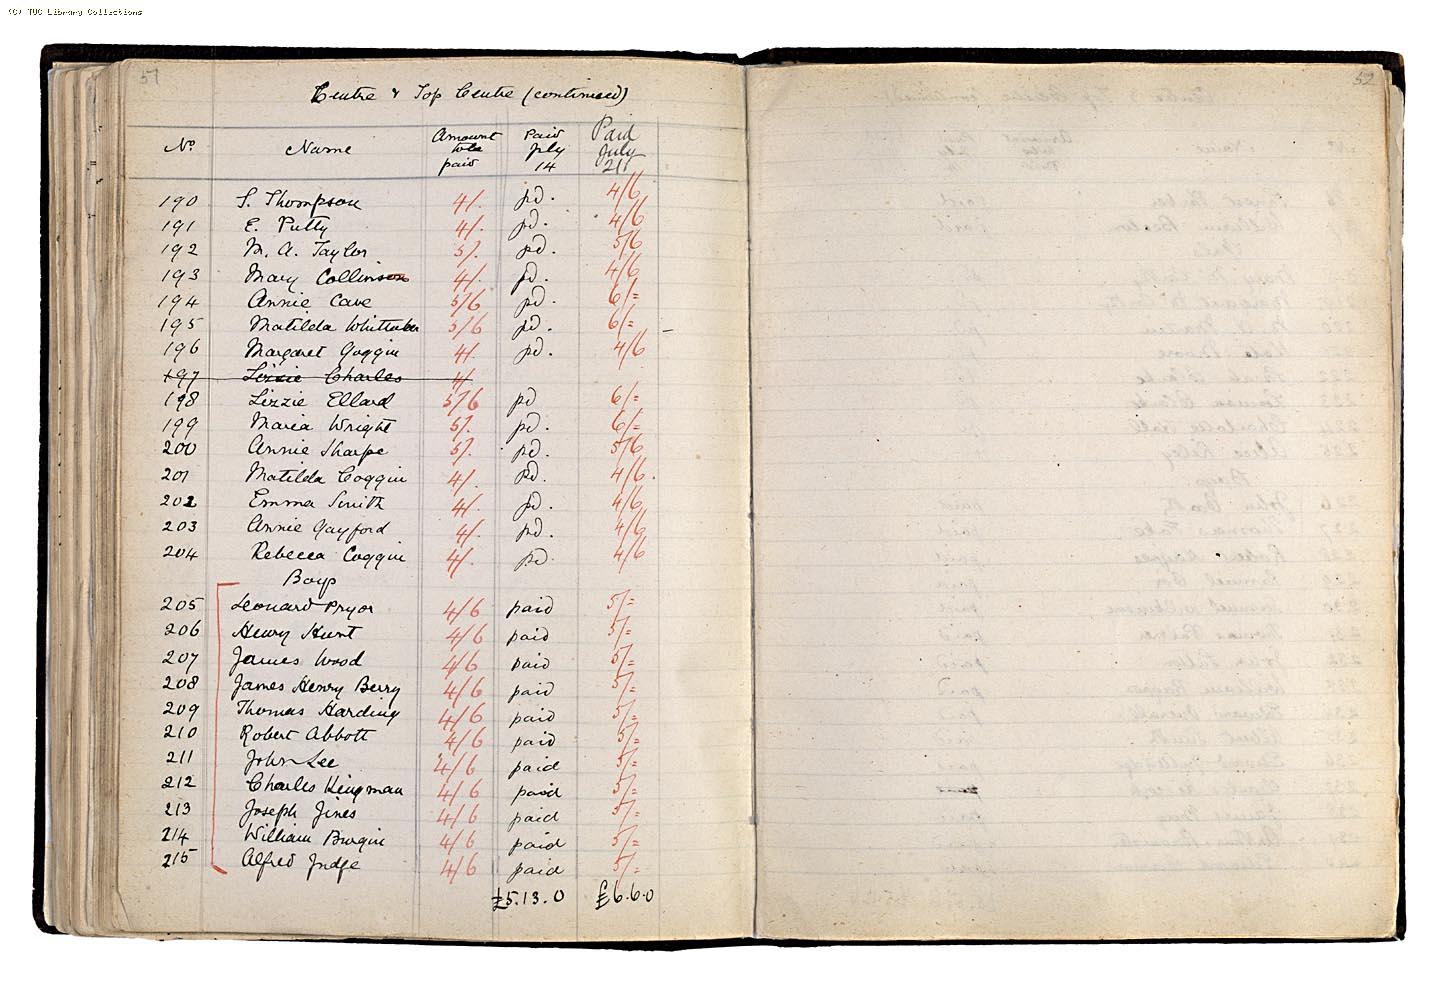 (C) TUC Library Collections
51
52
Centre & Top Centre (continued)
No Name Amount to be paid Paid July 14 Paid July 21
190 S. Thompson 4/. pd. 4/6
191 E. Putty 4/. pd. 4/6
192 M. A. Taylor 5/. pd. 5/6
193 Mary Collinson 4/. pd. 4/6
194 Annie Cave 5/6 pd. 6/=
195 Matilda Whittaker 5/6 pd. 6/=
196 Margaret Goggin 4/. pd. 4/6
197 Lizzie Charles 4/
198 Lizzie Ellard 5/6 pd 6/=
199 Maria Wright 5/. pd. 6/=
200 Annie Sharpe 5/. pd. 5/6
201 Matilda Coggin 4/. pd. 4/6.
202 Emma Smith 4/. pd. 4/6
203 Annie Gayford 4/. pd. 4/6
204 Rebecca Coggin 4/. pd. 4/6
Boys
205 Leonard Pryor 4/6 paid 5/=
206 Henry Hunt 4/6 paid 5/=
207 James Wood 4/6 paid 5/=
208 James Henry Berry 4/6 paid 5/=
209 Thomas Harding 4/6 paid 5/=
210 Robert Abbott 4/6 paid 5/=
211 John Lee 4/6 paid 5/=
212 Charles Kingman 4/6 paid 5/=
213 Joseph Jines 4/6 paid 5/=
214 William Burgin 4/6 paid 5/=
215 Alfred Judge 4/6 paid 5/=
£5.13.0 £6.6.0